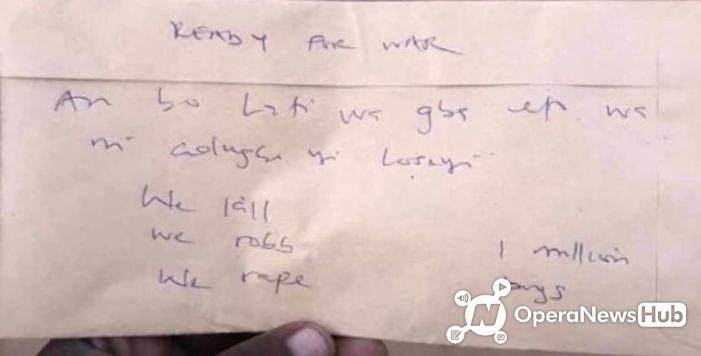 READY FOR WAR
An bo Lati wa gba eje wa
ni adugbo yi Loseyi
We kill
we robb
We rape
1 million
boys
OperaNewsHub